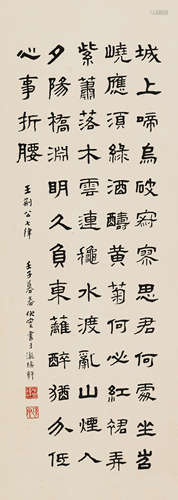 城上啼烏破寂寥思君何處坐岧
嶢應須綠酒醻黃菊何必紅裙弄
紫簫落木雲連穐水渡亂山煙入
夕陽橋淵明久負東籬醉猶分低
心事折腰
王荊公七律
壬子暮春 書于 軒